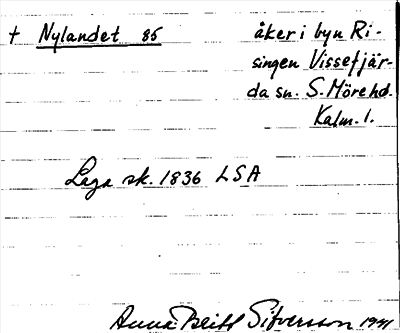 + Nylandet 85
åker i byn Ri-
singen Vissefjär-
da sn. S. Möre hd.
Kalm. l.
Laga sk. 1836 LSA
Anna-Britt Sifversson 1941